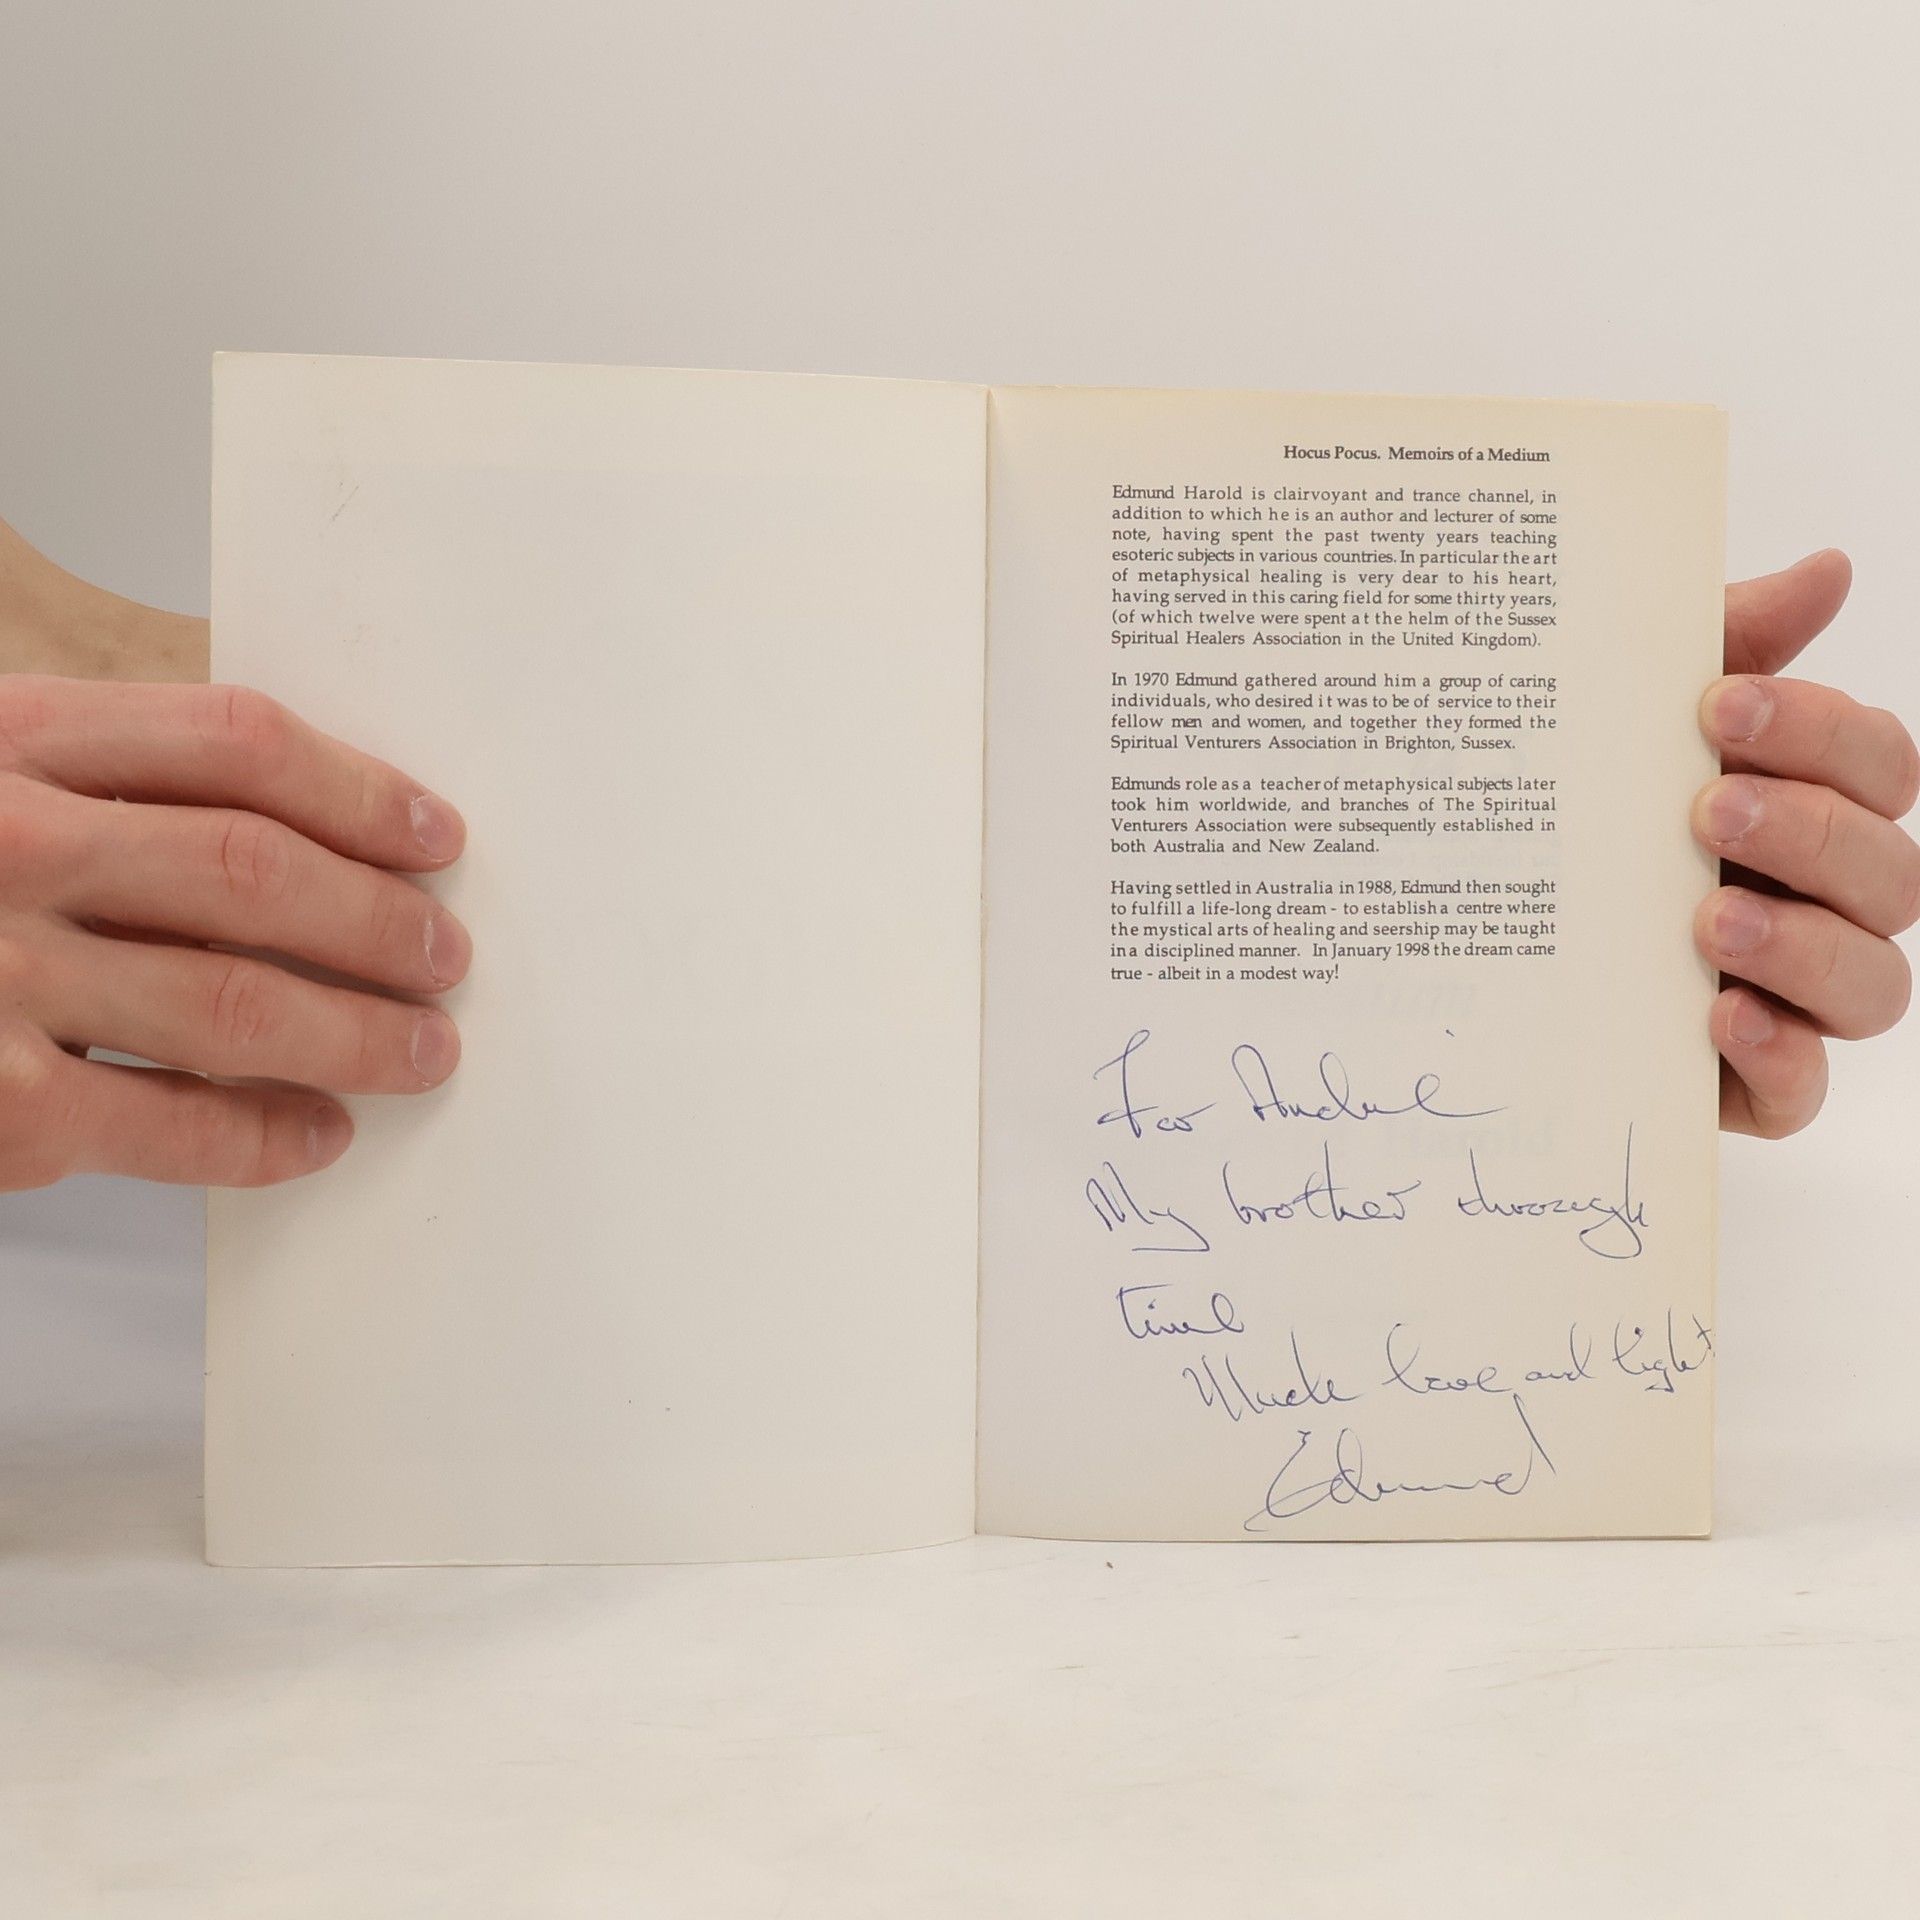 Hocus Pocus. Memoirs of a Medium
Edmund Harold is clairvoyant and trance channel, in
addition to which he is an author and lecturer of some
note, having spent the past twenty years teaching
esoteric subjects in various countries. In particular the art
of metaphysical healing is very dear to his heart,
having served in this caring field for some thirty years,
(of which twelve were spent at the helm of the Sussex
Spiritual Healers Association in the United Kingdom).
In 1970 Edmund gathered around him a group of caring
individuals, who desired it was to be of service to their
fellow men and women, and together they formed the
Spiritual Venturers Association in Brighton, Sussex.
Edmunds role as a teacher of metaphysical subjects later
took him worldwide, and branches of The Spiritual
Venturers Association were subsequently established in
both Australia and New Zealand.
Having settled in Australia in 1988, Edmund then sought
to fulfill a life-long dream - to establish a centre where
the mystical arts of healing and seership may be taught
in a disciplined manner. In January 1998 the dream came
true - albeit in a modest way!
For
My brother through
time
Much love and light
Edmund